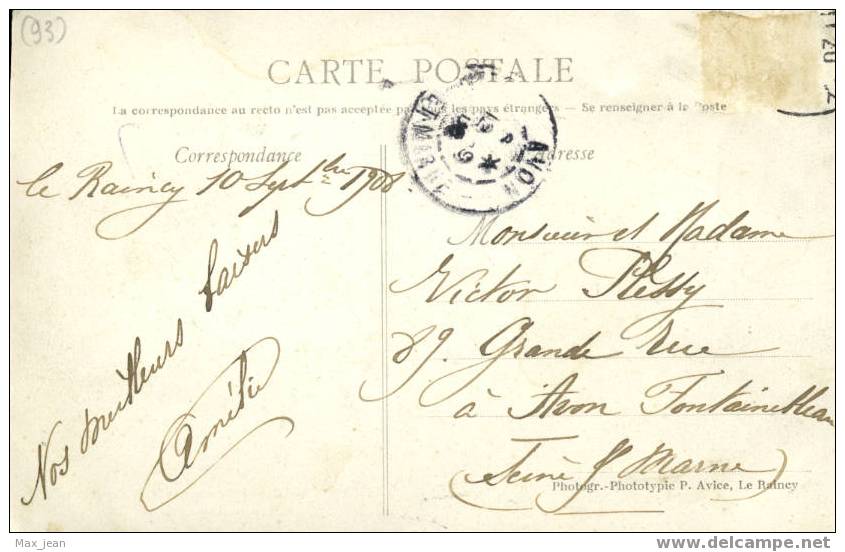 (93)
CARTE POSTALE
La correspondance au recto n'est pas acceptée par tous les pays étrangers — Se renseigner à la Poste
Correspondance
Adresse
AVON
le Raincy 10 Septbre 1908
Nos meilleurs baisers
Amélie
Monsieur et Madame
Victor Plessy
89. Grande rue
à Avon Fontainebleau
(Seine & Marne)
Photogr.-Phototypie P. Avice, Le Raincy
Max_jean
www.delcampe.net